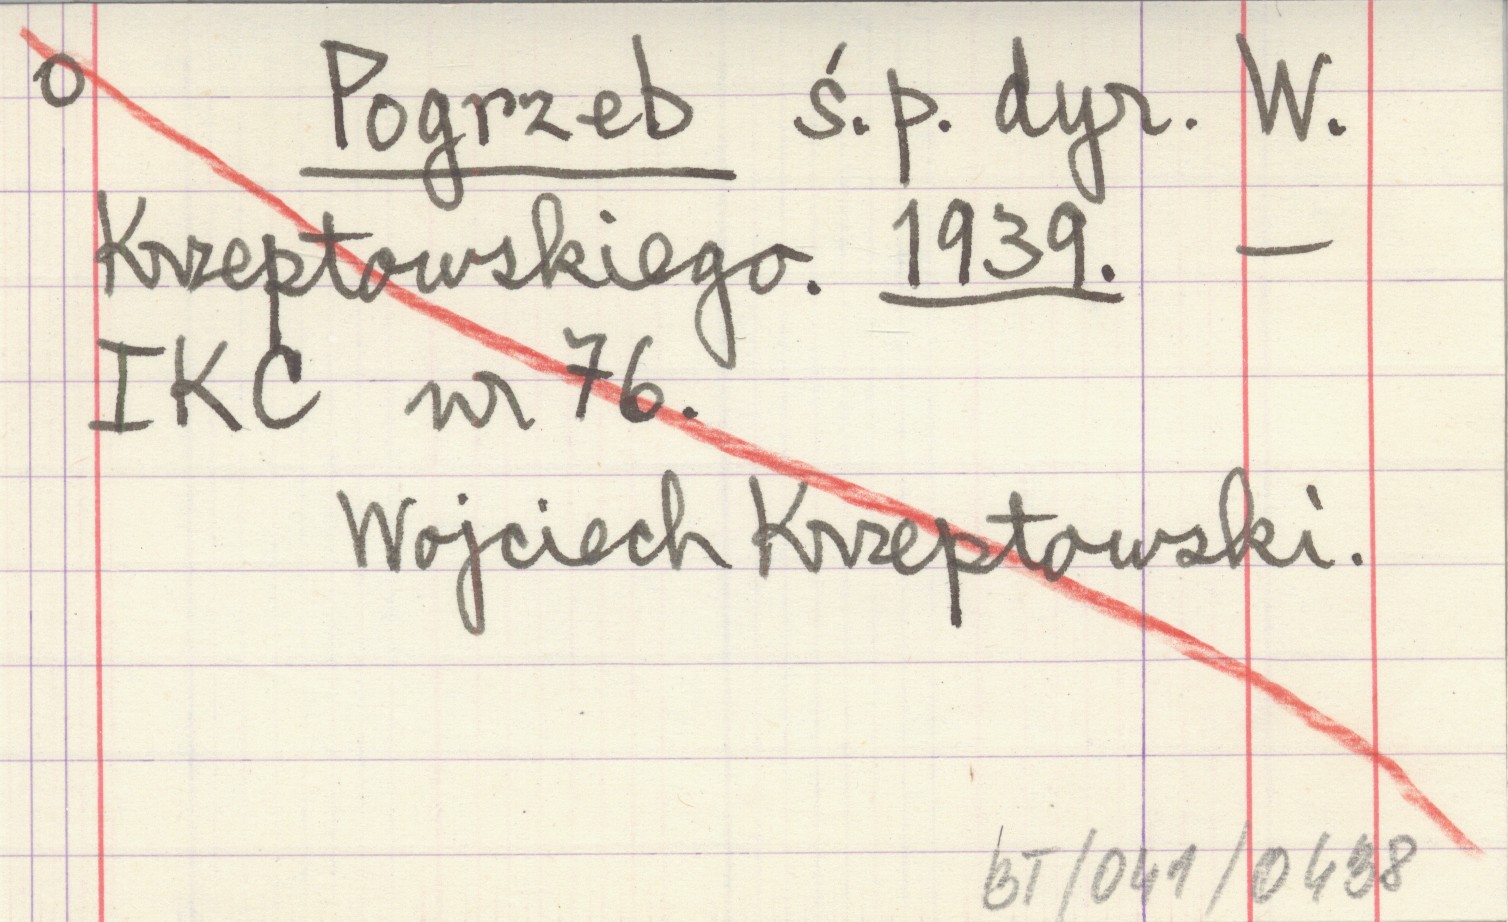 o Pogrzeb ś.p. dyr. W.
Krzeptowskiego. 1939. —
IKC nr 76.
Wojciech Krzeptowski.
BT/041/0438